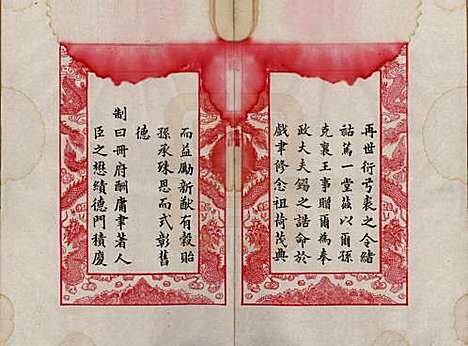 再世衍弓裘之令緒
祜萬一堂茲以爾孫
克襄王事贈爾為奉
政大夫錫之誥命於
戲聿修念祖荷茂典
而益勵新猷有穀貽
孫承殊恩而式彰舊
德
制曰冊府酬庸聿著人
臣之懋績德門積慶